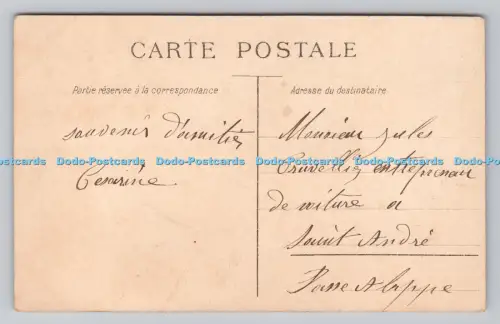 CARTE POSTALE
Partie réservée à la correspondance
Adresse du destinataire
souvenir d'amitiés
Césarine
Monsieur jules
de voiture a
Saint André
Dodo-Postcards Dodo-Postcards Dodo-Postcards Dodo-Postcards Dodo-Postcards Dodo-Postcards